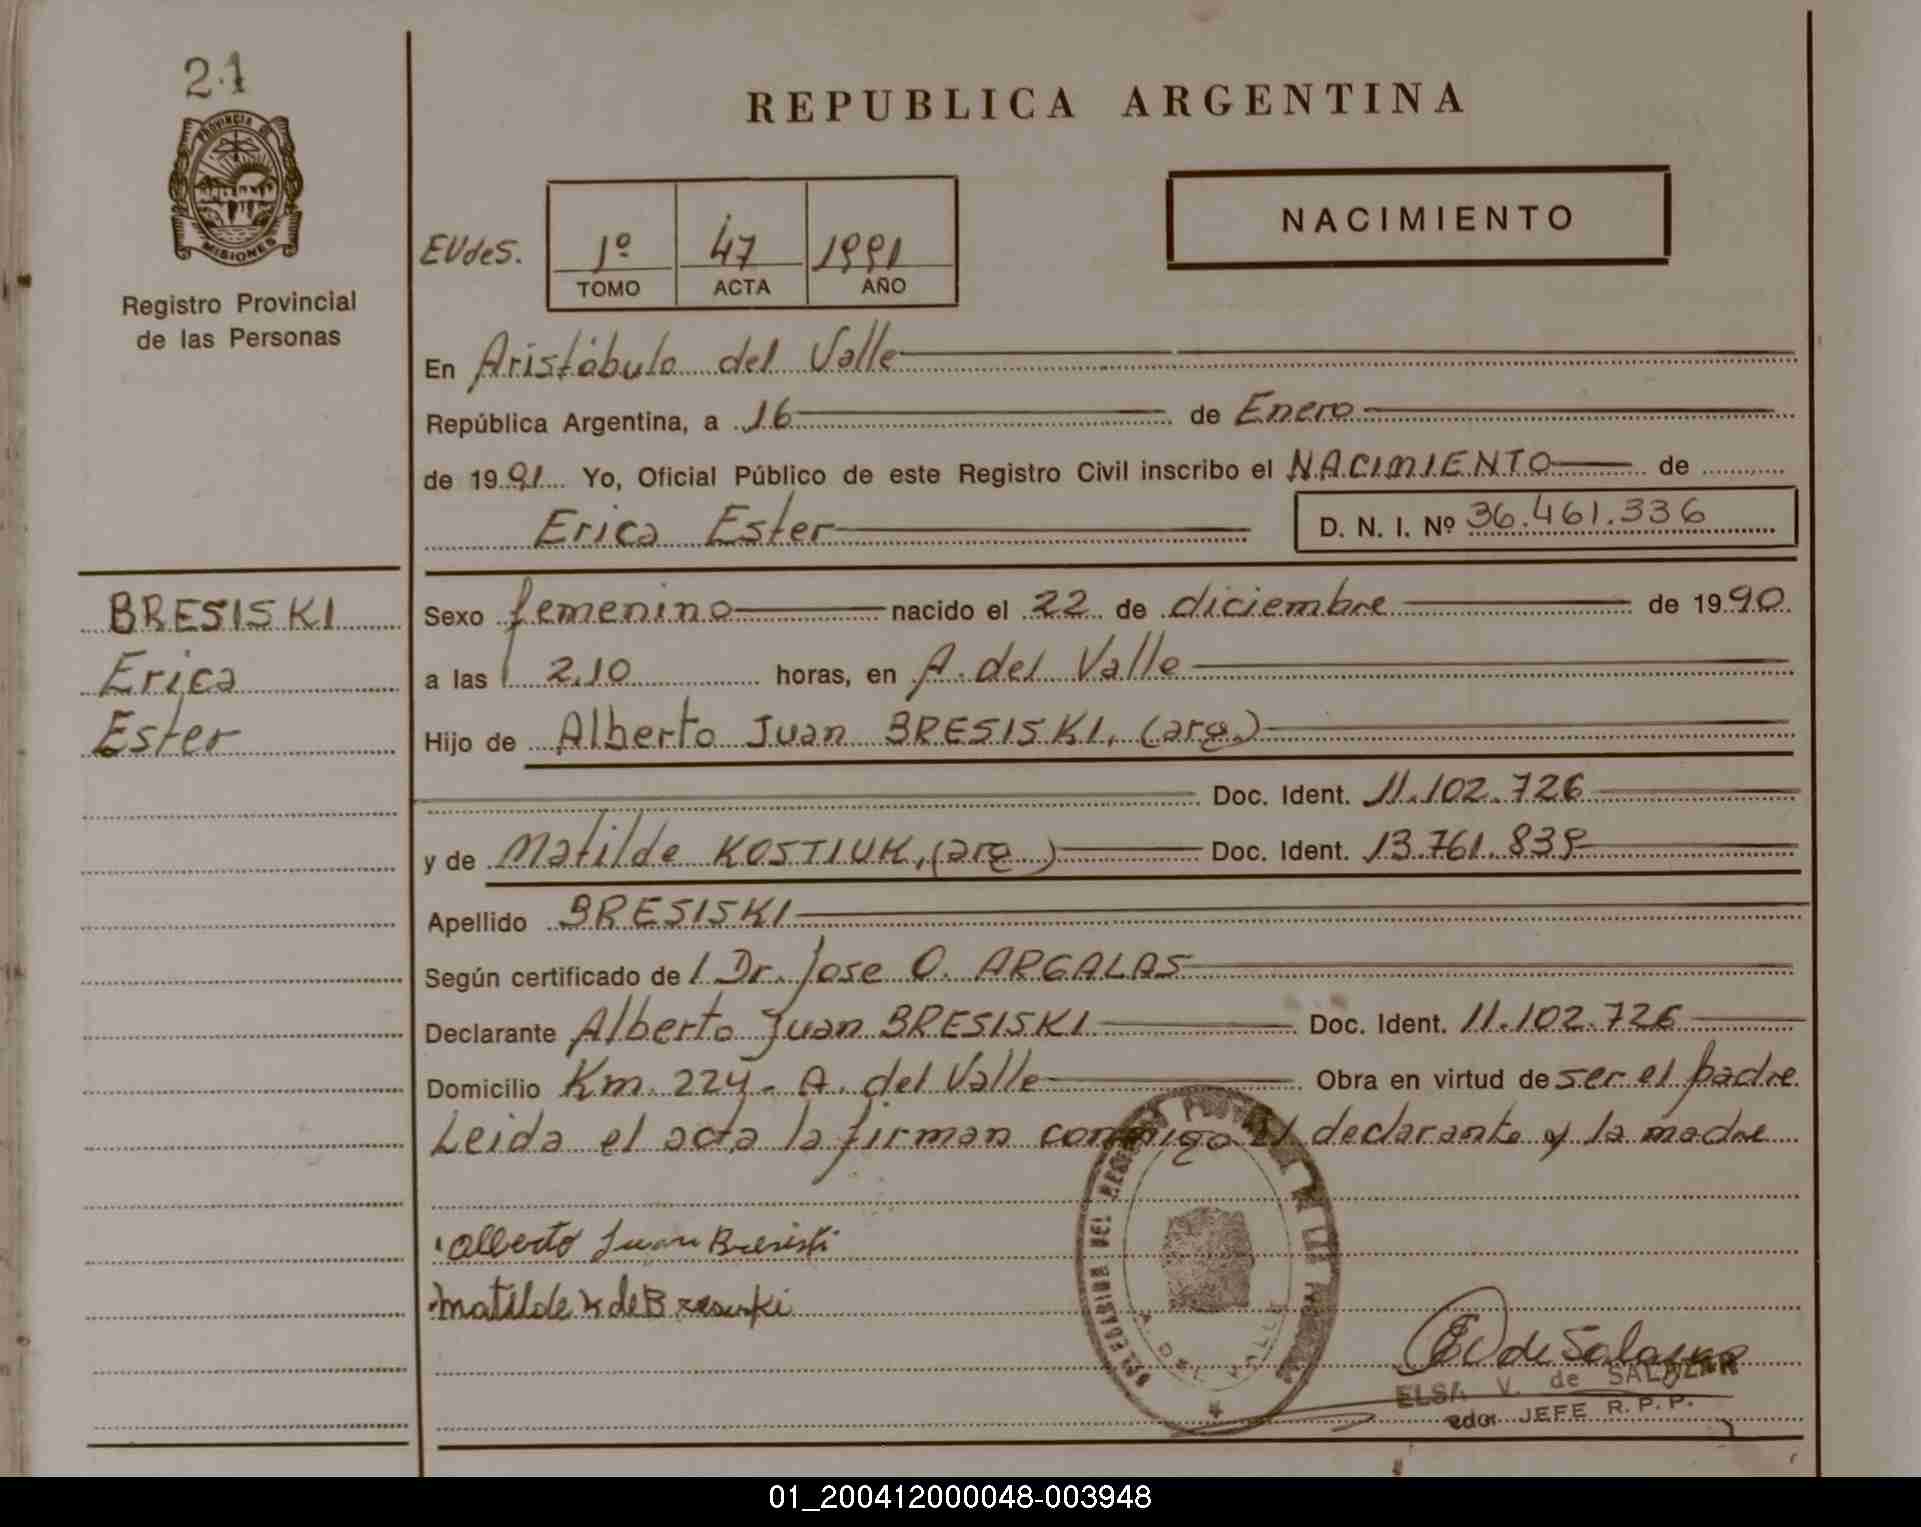 21
PROVINCIA DE
MISIONES
Registro Provincial
de las Personas
REPUBLICA ARGENTINA
NACIMIENTO
EVdeS. 1º 47 1991
TOMO ACTA AÑO
En Aristóbulo del Valle
República Argentina, a 16 de Enero
de 1991 Yo, Oficial Público de este Registro Civil inscribo el NACIMIENTO de
Erica Ester D. N. I. Nº 36.461.336
BRESISKI
Erica
Ester
Sexo femenino nacido el 22 de diciembre de 1990
a las 2.10 horas, en A. del Valle
Hijo de Alberto Juan BRESISKI, (arg.)
Doc. Ident. 11.102.726
y de Matilde KOSTIUK, (arg.) Doc. Ident. 13.761.839
Apellido BRESISKI
Según certificado de l Dr. Jose O. ARGALAS
Declarante Alberto Juan BRESISKI Doc. Ident. 11.102.726
Domicilio Km. 224 - A. del Valle Obra en virtud de ser el padre
Leida el acta la firman conmigo el declarante y la madre
Alberto Juan Bresiski
Matilde K de Bresiski
DELEGACION DEL
A. DEL VALLE
EV de Salazar
ELSA V. de SALAZAR
JEFE R.P.P.
01_200412000048-003948